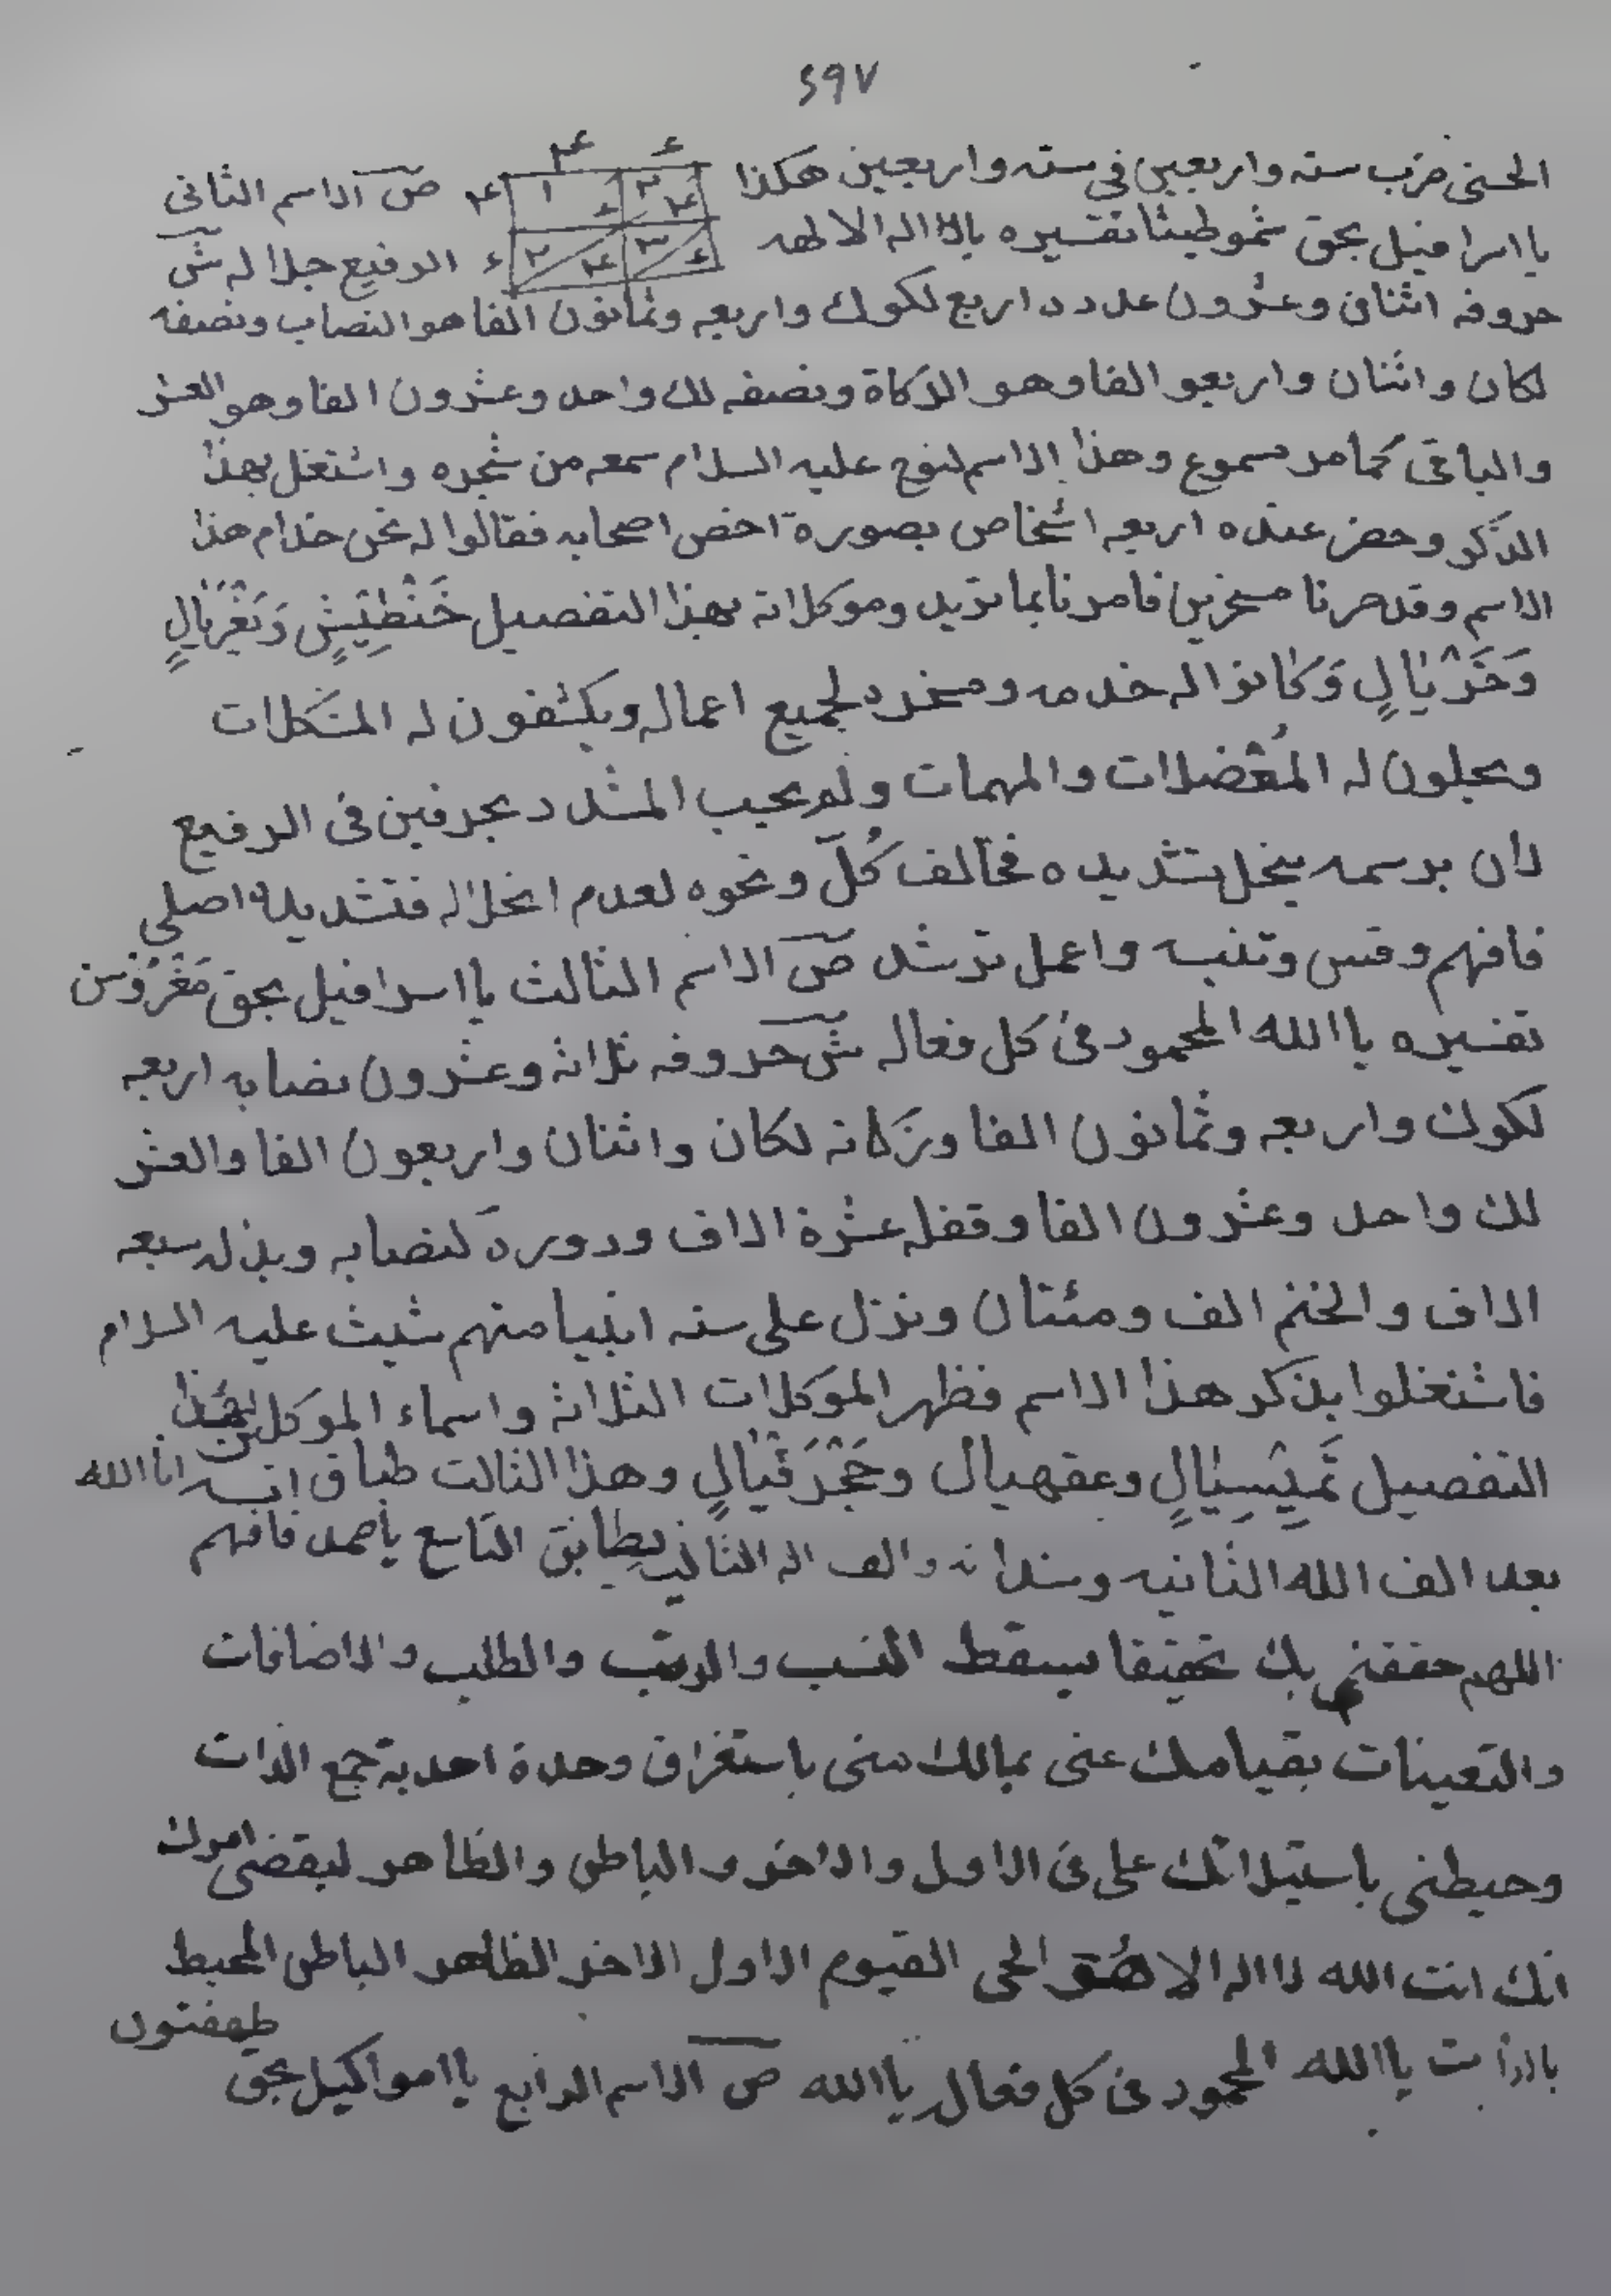 ٢٩٧
الحسنى ضرب سته واربعين فى سته واربعين هكذا ص الاسم الثانى
يا اسرافيل بحق شموطيثا تفسيره يا اله الالهه الرفيع جلاله ش
حروفه اثنان وعشرون عدد د اربع لكوك واربعه وثمانون الفا هو النصاب ونصفه
لكان واثنان واربعو الفا وهو الزكاة ونصفه لك واحد وعشرون الفا وهو العشر
والباقى كما مر مسموع وهذا الاسم لنوح عليه السلام سمعه من شجره واشتغل بهذا
الذكر وحضر عنده اربعه اشخاص بصورة اخص اصحابه فقالوا له نحن خدام هذا
الاسم وقد صرنا مسخرين فامرنا بما تريد وموكلاته بهذا التفصيل
وكانوا له خدمه لجميع اعماله ويكشفون له المشكلات
ويحلون له المعضلات والمهمات ولم يحسب المشدد بحرفين فى الرفيع
لان برسمه ينحل تشديده فخالف كلّ ونحوه لعدم انحلاله فتشديده اصلي
فافهم وقس وتنبه واعمل ترشد ص الاسم الثالث يا اسرافيل بحق
تفسيره يا الله المحمود فى كل فعاله ش حروفه ثلاثة وعشرون نصابه اربعه
لكوك واربعه وثمانون الفا وزكاته لكان واثنان واربعون الفا والعشر
لك واحد وعشرون الفا وقفله عشرة الاف ودوره كنصابه وبذله سبعه
الاف والختم الف ومئتان ونزل على سته انبيا منهم شيث عليه السلام
فاشتغلوا بذكر هذا الاسم فظهر الموكلات الثلاثة واسماء الموكلين بهذا
التفصيل وعقهيال وهذا الثالث طباق انا الله
بعد الف الله الثانيه والف اله الثالث يطابق التاسع يا صمد فافهم
اللهم حققنى بك تحقيقا يسقط النسب والرتب والطلب والاضافات
والتعينات بقيامك عنى بمالك منى باستغراق وحدة احدية جمع الذات
وحيطنى باستيلائك على فى الاول والاخر والباطن والظاهر ليقضى امرك
انك انت الله لا اله الا هو الحى القيوم الاول الاخر الظاهر الباطن المحيط
بالذات يا الله المحمود فى كل فعاله يا الله ص الاسم الرابع يا امواكيل بحق
طهفتون